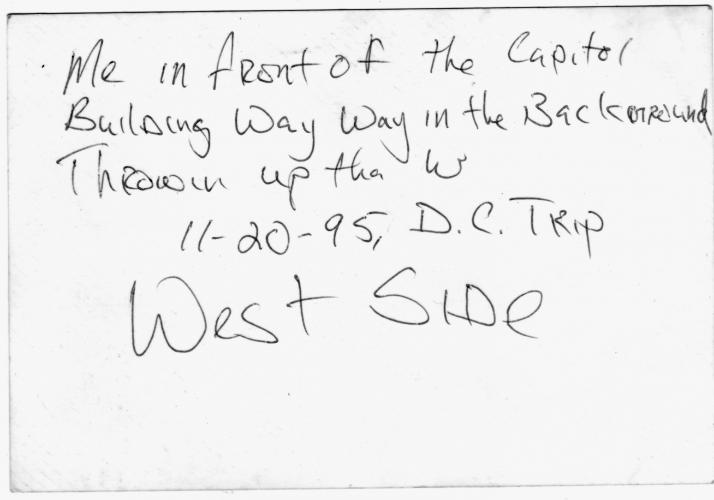 Me in front of the Capitol
Building Way Way in the Background
Throwin up tha W
11-20-95, D.C. Trip
West Side